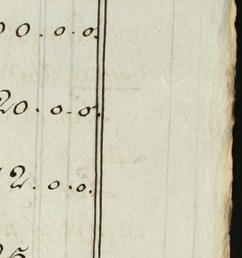 00.0.0.
20.0.0.
2.0.0.
25